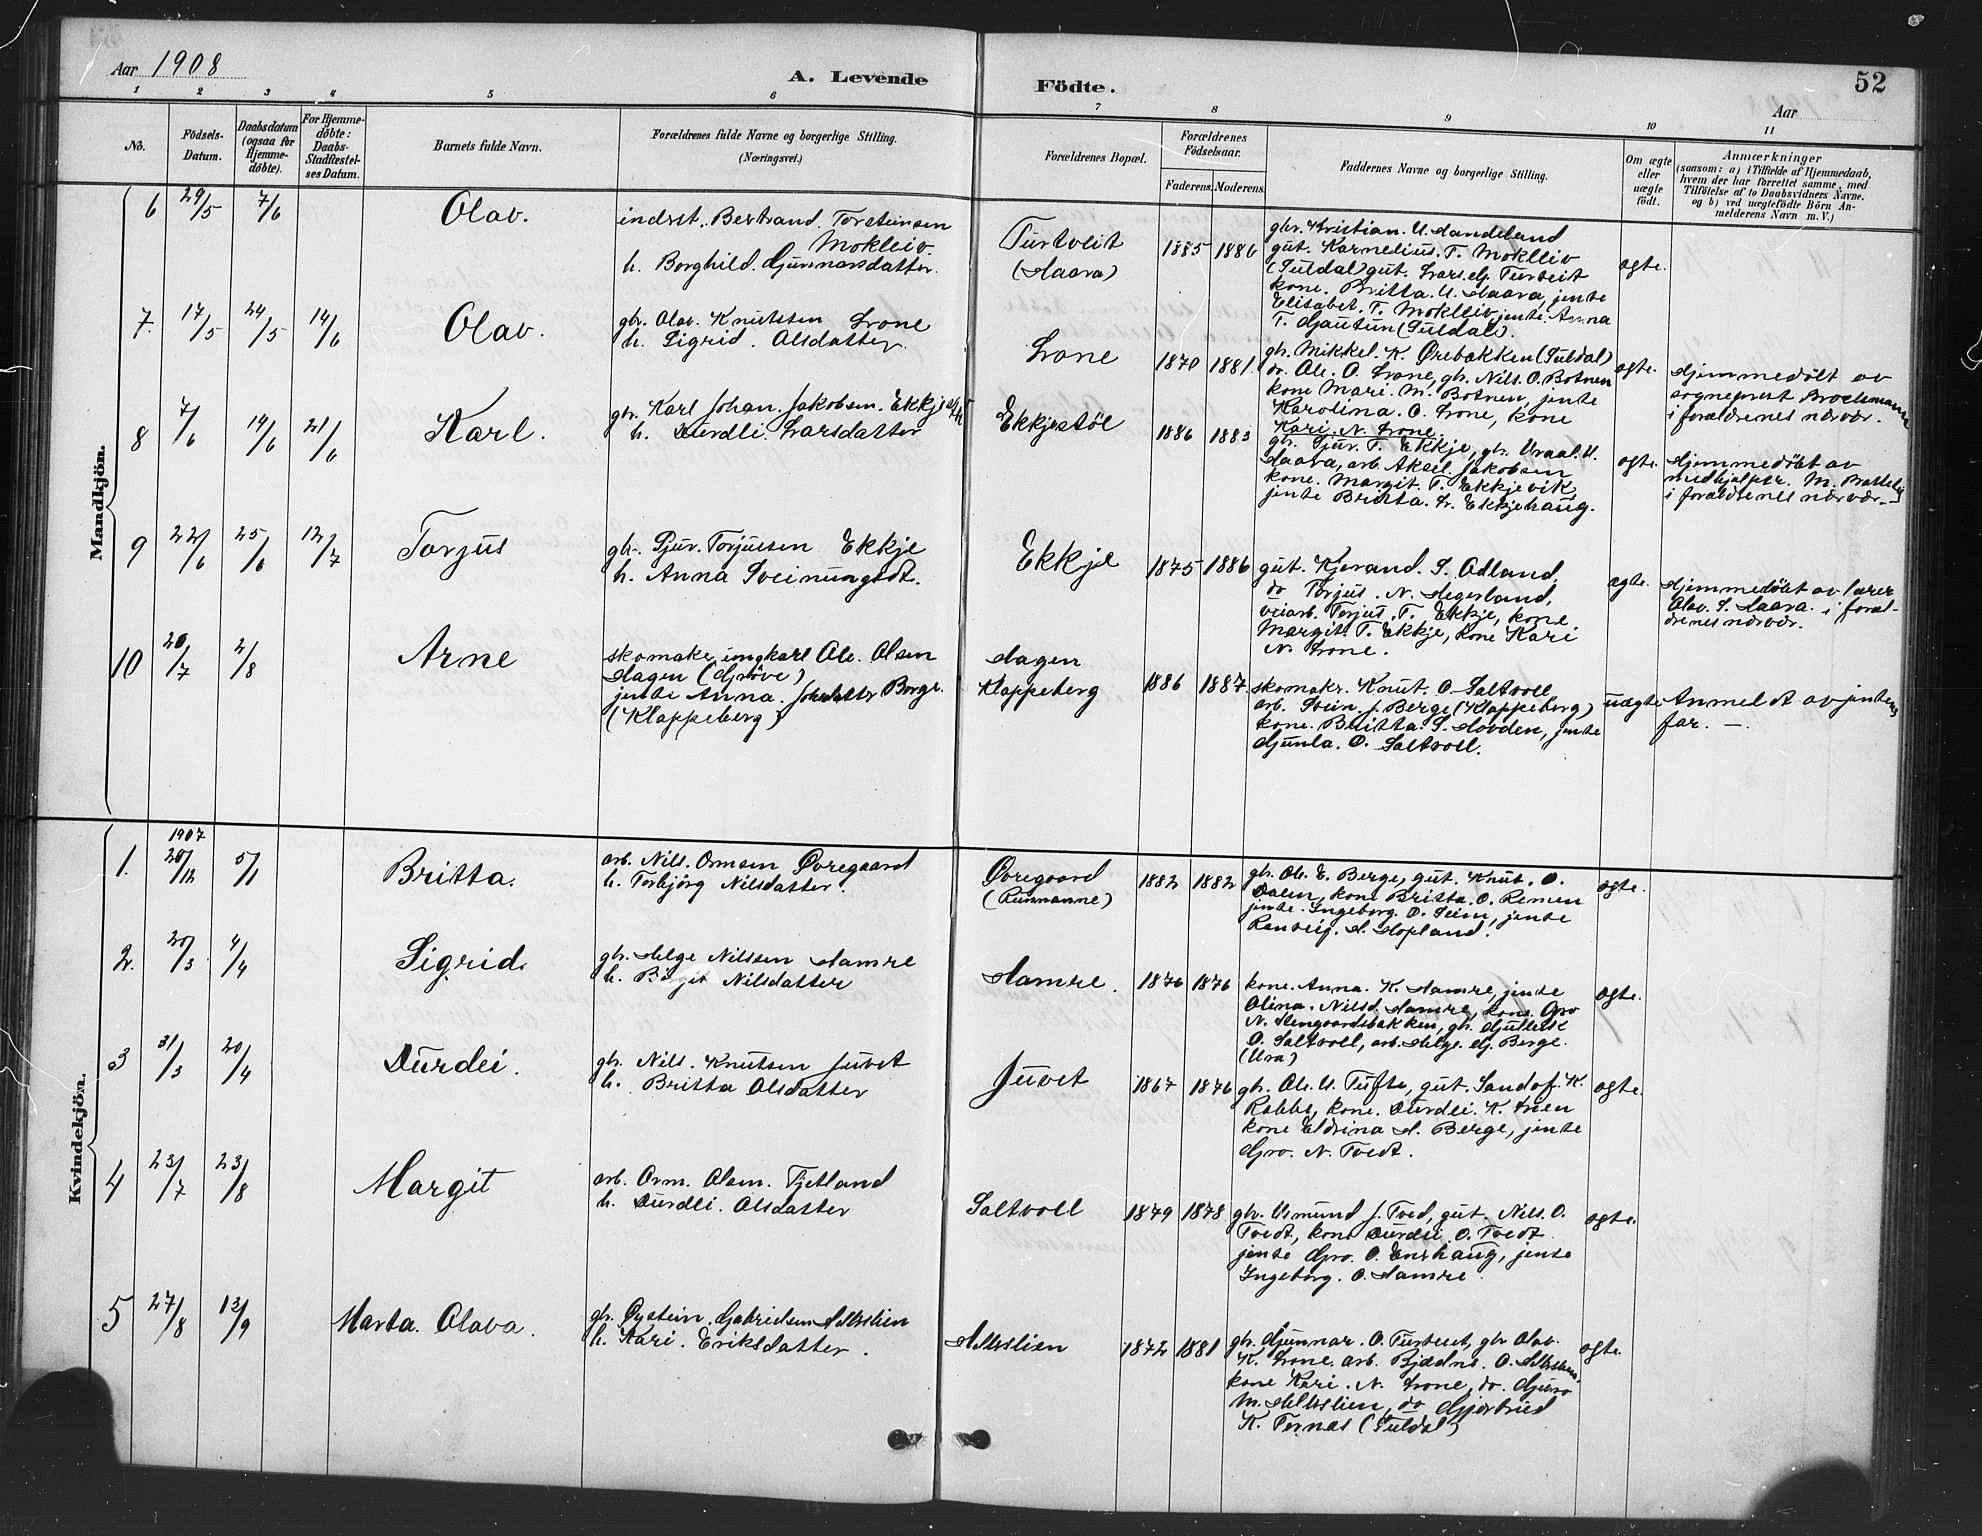 Aar 1908
A. Levende
Födte.
52
Aar
1 2 3 4 5 6 7 8 9 10 11
No.
Födsels-
Datum.
Daabsdatum
(ogsaa for
Hjemme-
döbte).
For Hjemme-
döbte:
Daabs-
Stadfæstel-
ses Datum.
Barnets fulde Navn.
Forældrenes fulde Navne og borgerlige Stilling.
(Næringsvei.)
Forældrenes Bopæl.
Forældrenes
Födselsaar.
Faderens. Moderens.
Faddernes Navne og borgerlige Stilling.
Om ægte
eller
uægte
födt.
Anmærkninger
(saasom: a) i Tilfælde af Hjemmedaab,
hvem der har forrettet samme, med
Tilföielse af to Daabsvidners Navne,
og b) ved uægtefödte Börn An-
melderens Navn m. V.)
Mandkjön.
6 29/5 7/6 Olav.
indrst. Bertrand Torsteinsen
Mokleiv
h. Borghild. Gunnarsdatter.
Turtveit
(Haara)
1885 1886
gbr. Kristian. U. Sandeland
gut. Karnelius. T. Mokleiv
(Suldal) gut. Lars. Gj. Turtveit
kone. Britta. U. Haara, jente
Elisabet. T. Mokleiv, jente. Anna
T. Gautun (Suldal).
ægte.
7. 17/5 24/5 14/6 Olav.
gbr. Olav. Knutssen Lone
h. Sigrid. Olsdatter.
Lone
1870 1881.
gbr. Mikkel. K. Ørebakken (Suldal)
do. Ole. O. Lone, gbr. Nils. O. Botnen
kone Mari. M. Botnen, jente
Karolina. O. Lone, kone
Kari. N. Lone.
ægte.
Hjemmedøbt av
sogneprest Brochmann
i forældrenes nærvær.
8 7/6 14/6 21/6 Karl.
gbr. Karl Johan. Jakobsen. Ekkje
h. Durdei. Larsdatter
Ekkjestöl
1886 1883
gbr. Sjur. T. Ekkje, gbr. Vraal. U.
Haara, arb. Aksel. Jakobsen
kone. Margit. T. Ekkjevik,
jente Britta. L. Ekkjehaug.
ægte.
Hjemmedøbt av
medhjælper. M. Bratteli
i forældrenes nærvær.
9 22/6 25/6 12/7 Torjus
gbr. Sjur. Torjussen Ekkje
h. Anna Sveinungsdt.
Ekkje
1875 1886
gut. Kjerand. S. Ødland,
do Torjus. N. Hegerland,
veiarb. Torjus. T. Ekkje, kone.
Margit. T. Ekkje, kone Kari
N. Lone.
ægte.
Hjemmedøbt av lærer
Olav. S. Haara. i foræl-
drenes nærvær.
10 20/7 2/8 Arne
skomaker, ungkarl Ole. Olsen
Hagen (Grøve)
jente Anna. Johsdatter Berge
(Klappeberg)
Hagen
Klappeberg
1886 1887.
skomakr. Knut. O. Saltvoll
arb. Svein. J. Berge (Klappeberg)
kone. Britta. S. Hovden, jente
Gunla. O. Saltvoll.
uægte.
Anmeldt av jentens
far. —
Kvindekjön.
1. 1907 20/12 5/1 Britta.
arb. Nils. Ormsen Øvregaard
h. Torbjörg Nilsdatter.
Øvregaard
(Runnanne)
1882 1882
gbr. Ole. E. Berge, gut. Knut. O.
Dalen, kone Britta. O. Remen
jente. Ingeborg. O. Seim, jente
Ranveig. H. Hopland.
ægte.
2. 20/3 4/4 Sigrid.
gbr. Helge Nilssen Hamre
h. Birgit Nilsdatter
Hamre.
1876 1876
kone. Anna. K. Hamre, jente
Olina. Nilsd. Hamre, kone. Gro
N. Stengaardsbakken, gbr. Gulleik
O. Saltvoll, arb. Helge. Gj. Berge.
(Ura)
ægte.
3 31/3 20/4 Durdei.
gbr. Nils. Knutsen Juvet
h. Britta Olsdatter
Juvet
1867 1876
gbr. Ole. U. Tufte, gut. Sandof. K.
Rabbe, kone. Durdei. K. Lien
kone Eldrina H. Berge, jente
Gro. N. Tvedt.
ægte.
4 23/7 23/8 Margit
arb. Orm. Olsen. Fjetland
h. Durdei. Olsdatter
Saltvoll
1879 1878
gbr. Asmund J. Tved, gut. Nils. O.
Tvedt, kone Durdei. O. Tvedt
jente Gro. O. Enshaug, jente
Ingeborg. O. Hamre.
ægte.
5 27/8 13/9 Marta. Olava.
gbr. Øystein. Gabrielsen
h. Kari. Eriksdatter.
1872 1881
gbr. Gunnar. O. Turtveit, gbr Olav.
K. Lone, arb. O.
kone Kari. N. Lone, do. Guro
M. do Gjertrud
K. Tornas (Suldal)
ægte.